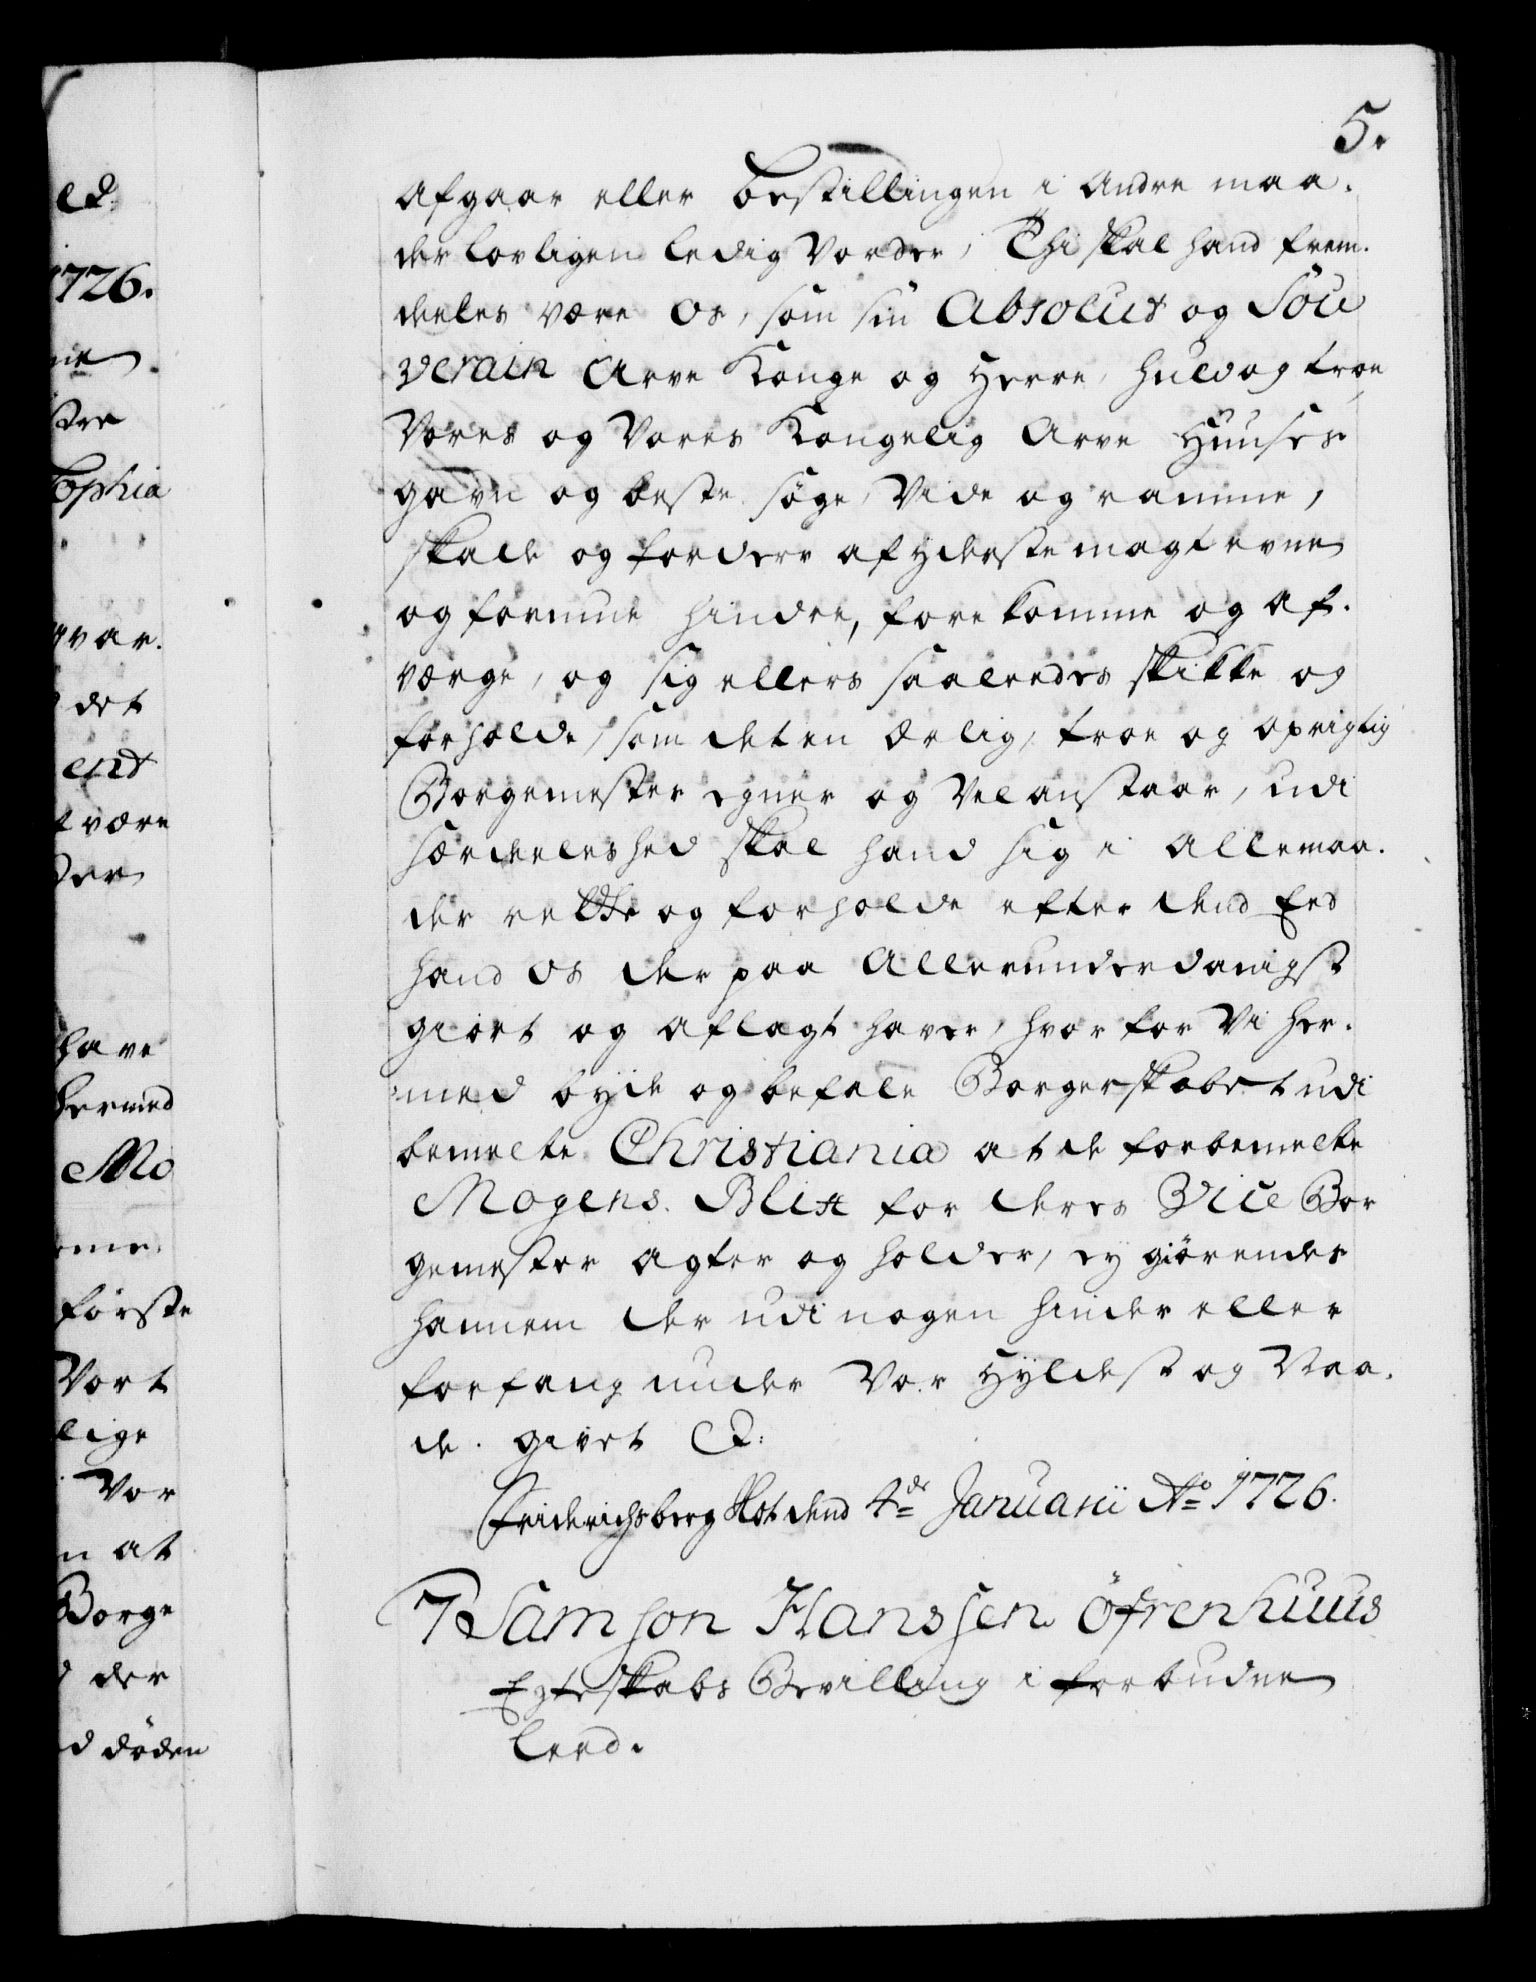 5.
afgaar eller bestillingen i andre maa-
der lovligen ledig vorder, Thi skal hand frem-
deeles være Os, som sin Absolut og Sou
verain Arve Konge og Herre, huld og troe,
Vores og Vores Kongelig Arve Huuses
gavn og beste søge, vide og ramme,
skade og forderv af yderste magt evne
og formue hindre, forekomme og af-
værge, og sig ellers saaledes skikke og
forholde, som det en ærlig, troe og oprigtig
Borgemester egner og vel anstaar, udi
særdeeleshed skal hand sig i alle maa-
der rette og forholde efter dend Eed
hand Os der paa allerunderdanigst
giort og aflagt haver, hvorfor Vi her-
med byde og befale Borgerskabet udi
bemelte Christiania at de forbemelte
Mogens Blix for deres Vice Bor
gemester agter og holder, ey giørendes
hannem der udi nogen hinder eller
forfang under Vor Hyldest og Naa-
de. Givet &:
Friderichsberg Slot dend 4de Januarii Ao 1726.
Samson Hanssen Öfrenhuus
Egteskabs Bevilling i forbudne
Leed.
ed
1726.
ophia
svar.
det
ent
være
der
have
hermed
Mo
første
Vort
lige
Vor
n at
Borge
der
d døden